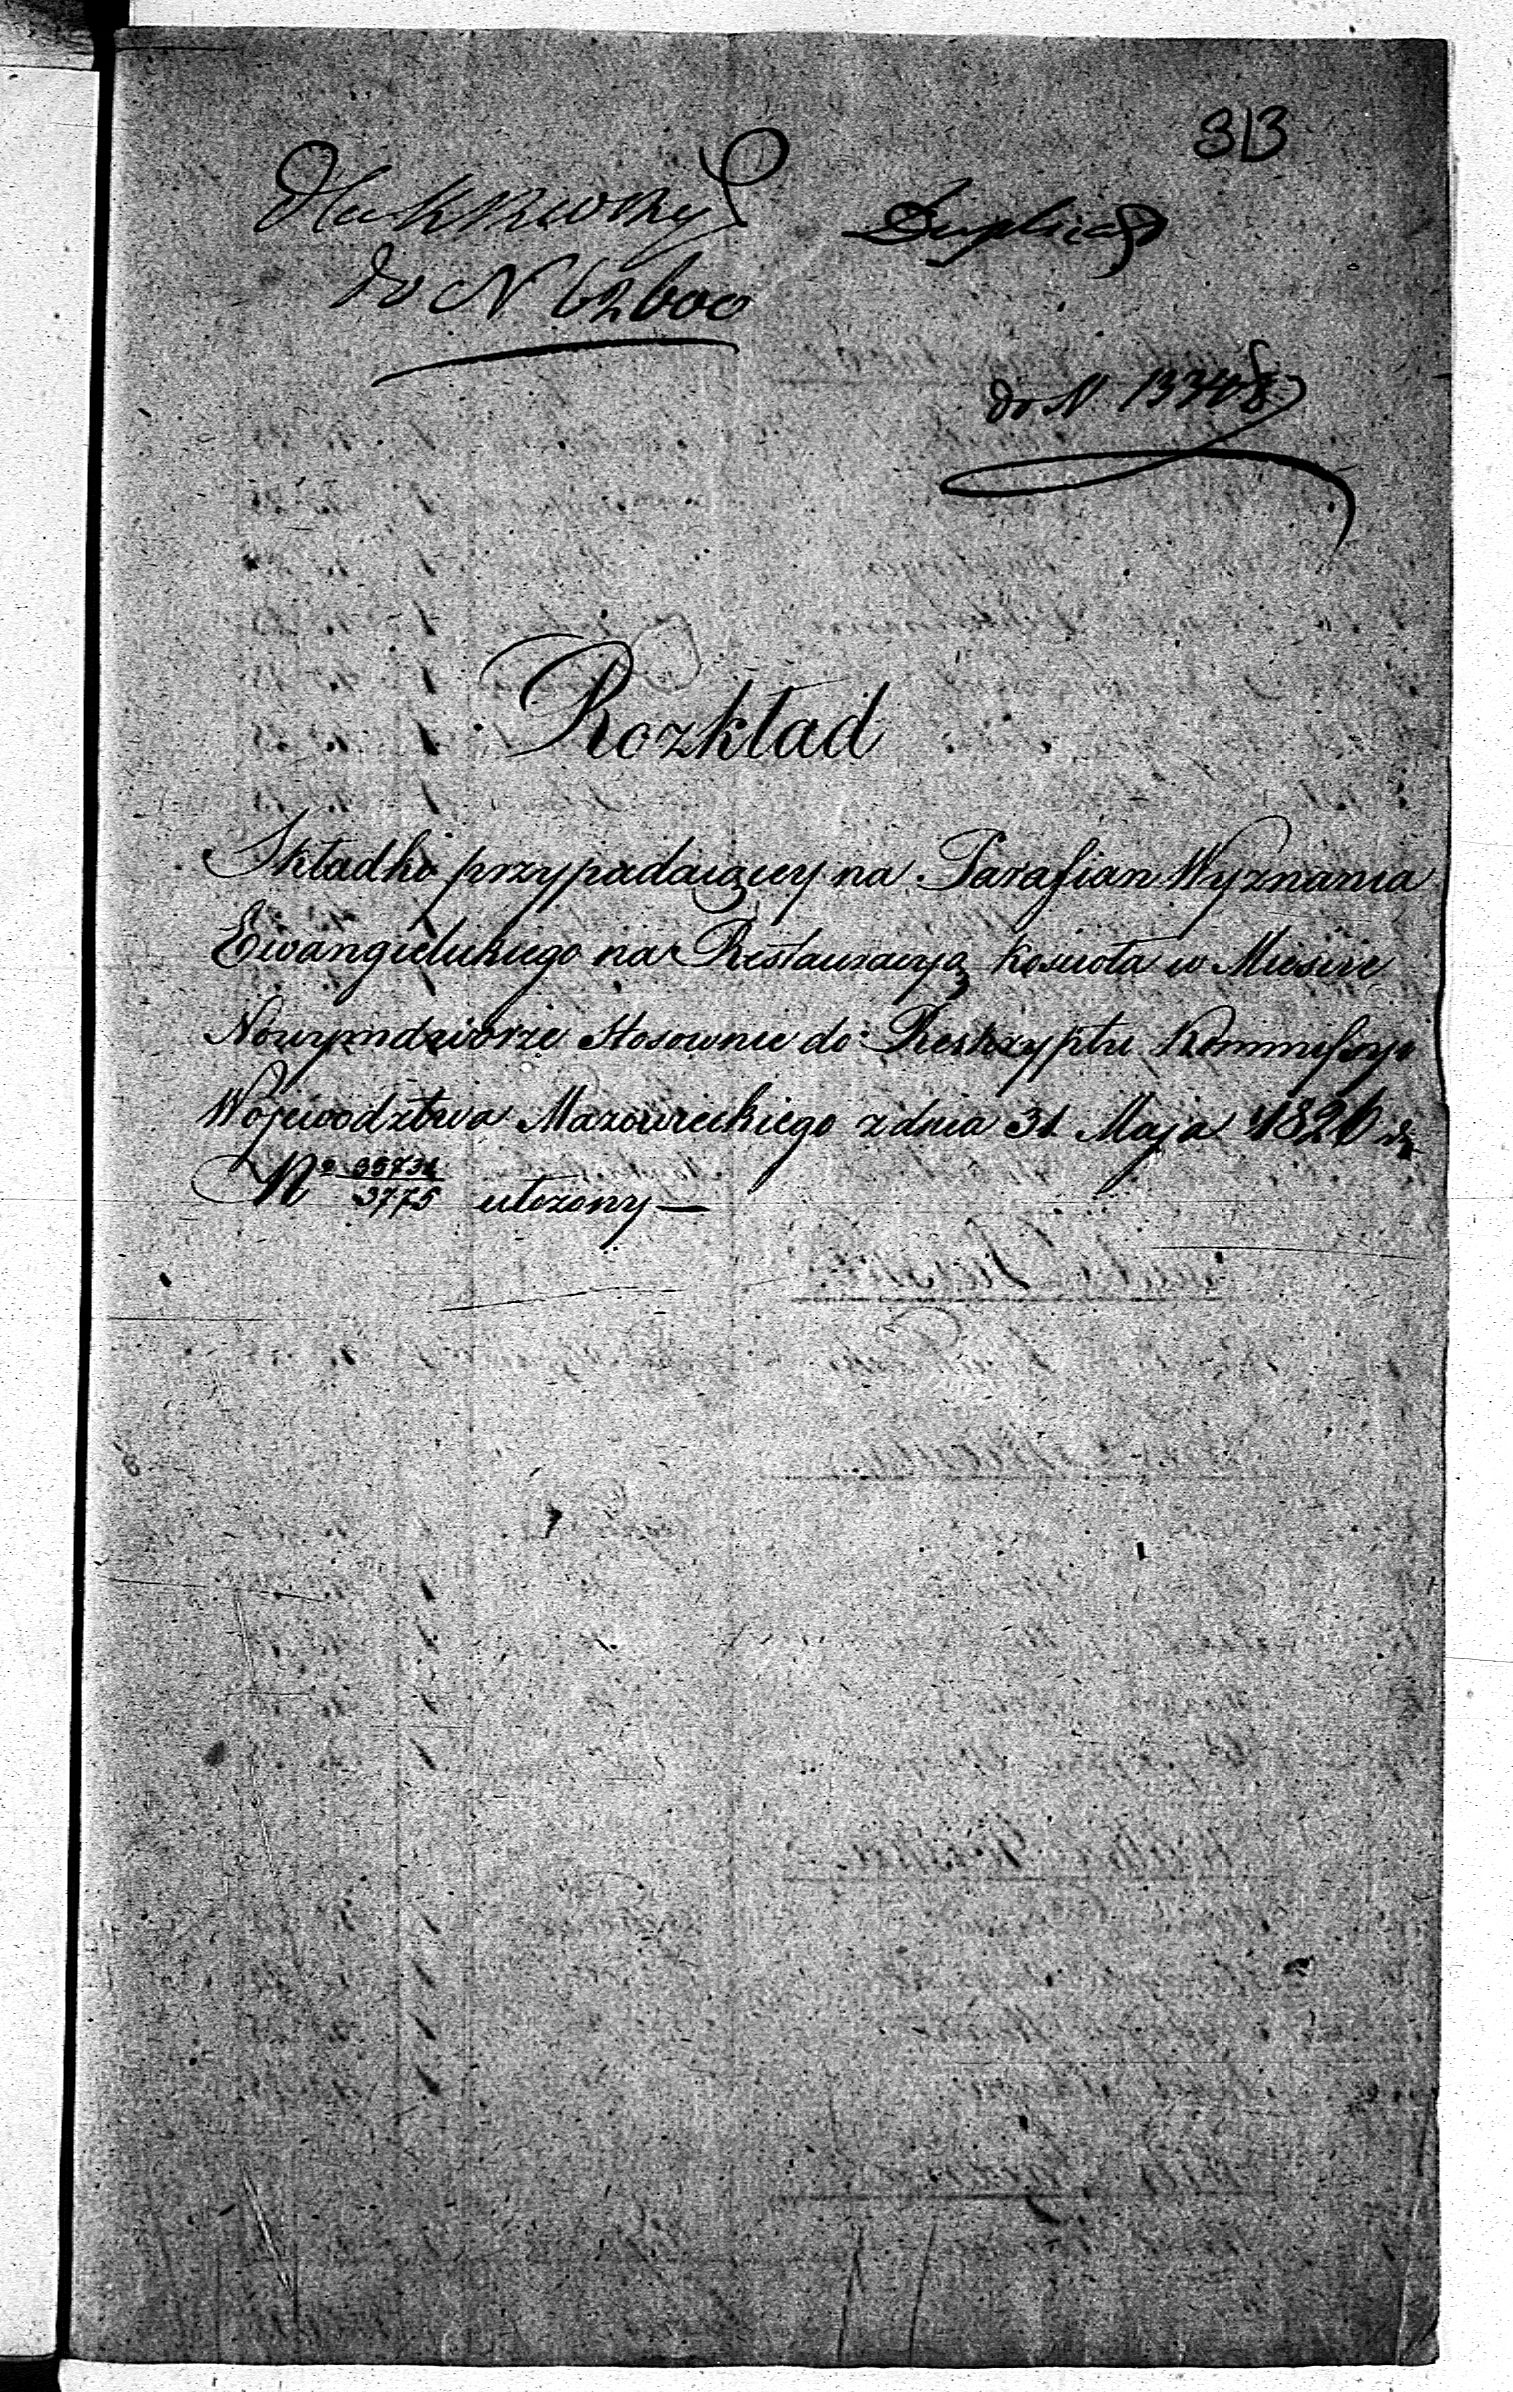 313
Dla KRWoRy
Duplicat
do N 62600
do N. 13348
Rozkład
Składki przypadaiącey na Parafian Wyznania
Ewangielickiego na Restauracyą Kościoła w Mieście
Nowymdworze stosownie do Reskryptu Kommissyi
Województwa Mazowieckiego z dnia 31 Maja 1826
No 3775 ułożony —